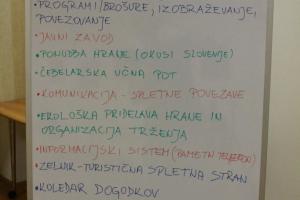 • PROGRAMI/BROŠURE, IZOBRAŽEVANJE,
POVEZOVANJE
• JAVNI ZAVOD
• PONUDBA HRANE (OKUSI SLOVENIJE)
• ČEBELARSKA UČNA POT
• KOMUNIKACIJA - SPLETNE POVEZAVE
• EKOLOŠKA PRIDELAVA HRANE IN
ORGANIZACIJA TRŽENJA
• INFORMACIJSKI SISTEM (PAMETN TELEFON)
• ZELNIK - TURISTIČNA SPLETNA STRAN
• KOLEDAR DOGODKOV